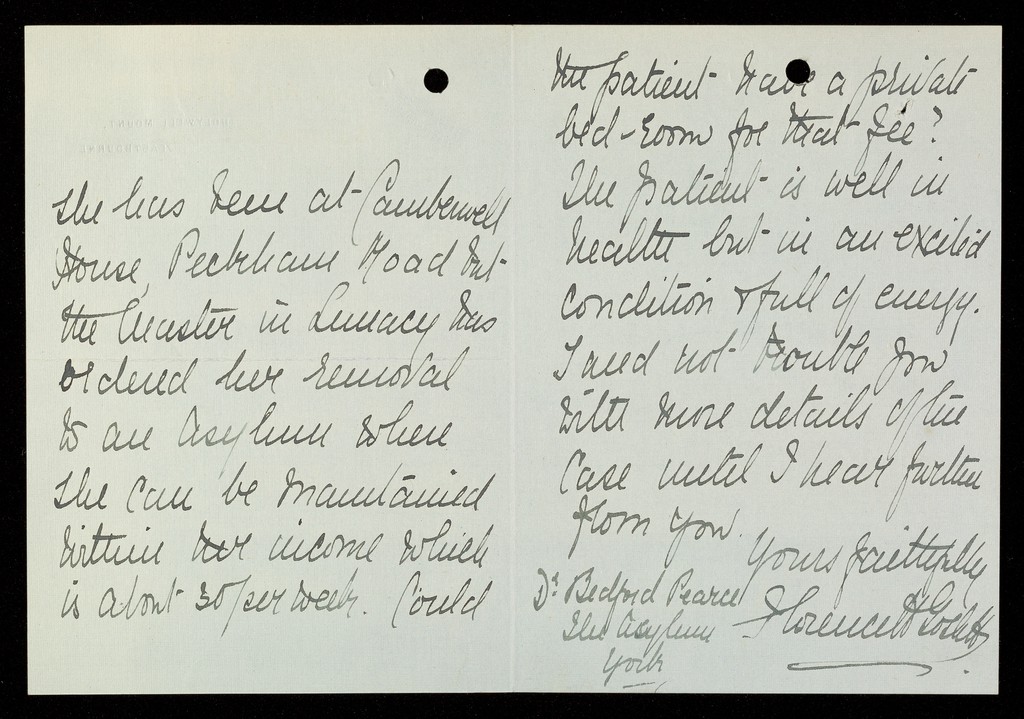 She has been at Camberwell
House, Peckham Road but
the Master in Lunacy has
ordered her removal
to an Asylum where
she can be maintained
within her income which
is about 30/ per week. Could
the patient have a private
bed-room for that fee?
The patient is well in
health but in an excited
condition & full of energy.
I need not trouble you
with more details of the
case until I hear further
from you.
Yours faithfully
Florence
Dr Bedford Pearce
The Asylum
York